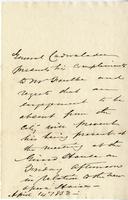 General Cadwalader
presents his compliments
to Mr Fouthe and
regrets that an
engagement to be
absent from the
City will prevent
his being present at
the meeting at the
Girard House on
Friday afternoon
in relation to the new
opera House
April 14 1853